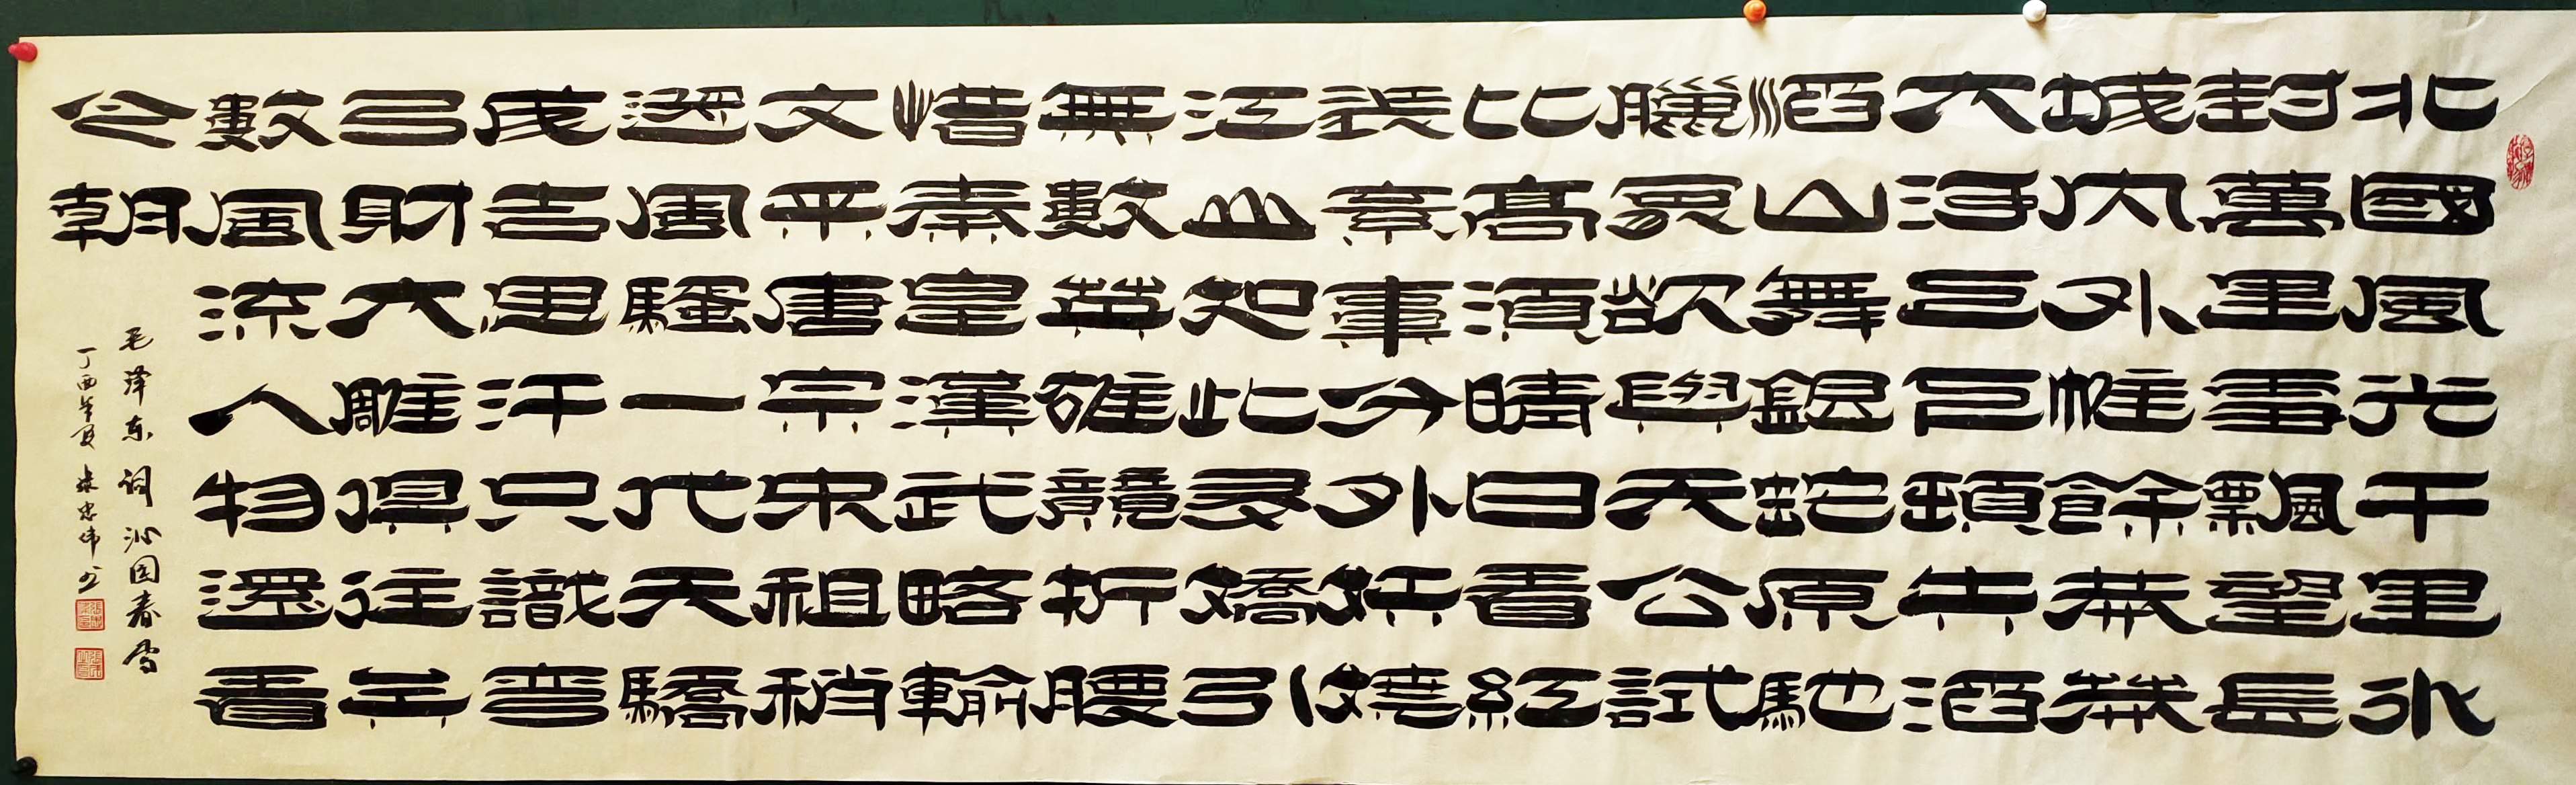 北國風光千里冰
封萬里雪飄望長
城内外惟餘莽莽
大河上下頓失滔
滔山舞銀蛇原馳
臘象欲與天公試
比高須晴日看紅
裝素裹分外妖嬈
江山如此多嬌引
無數英雄競折腰
惜秦皇漢武略輸
文采唐宗宋祖稍
遜風騷一代天驕
成吉思汗只識彎
弓射大雕俱往矣
數風流人物還看
今朝
毛泽东词沁园春雪
丁酉年夏忠伟书